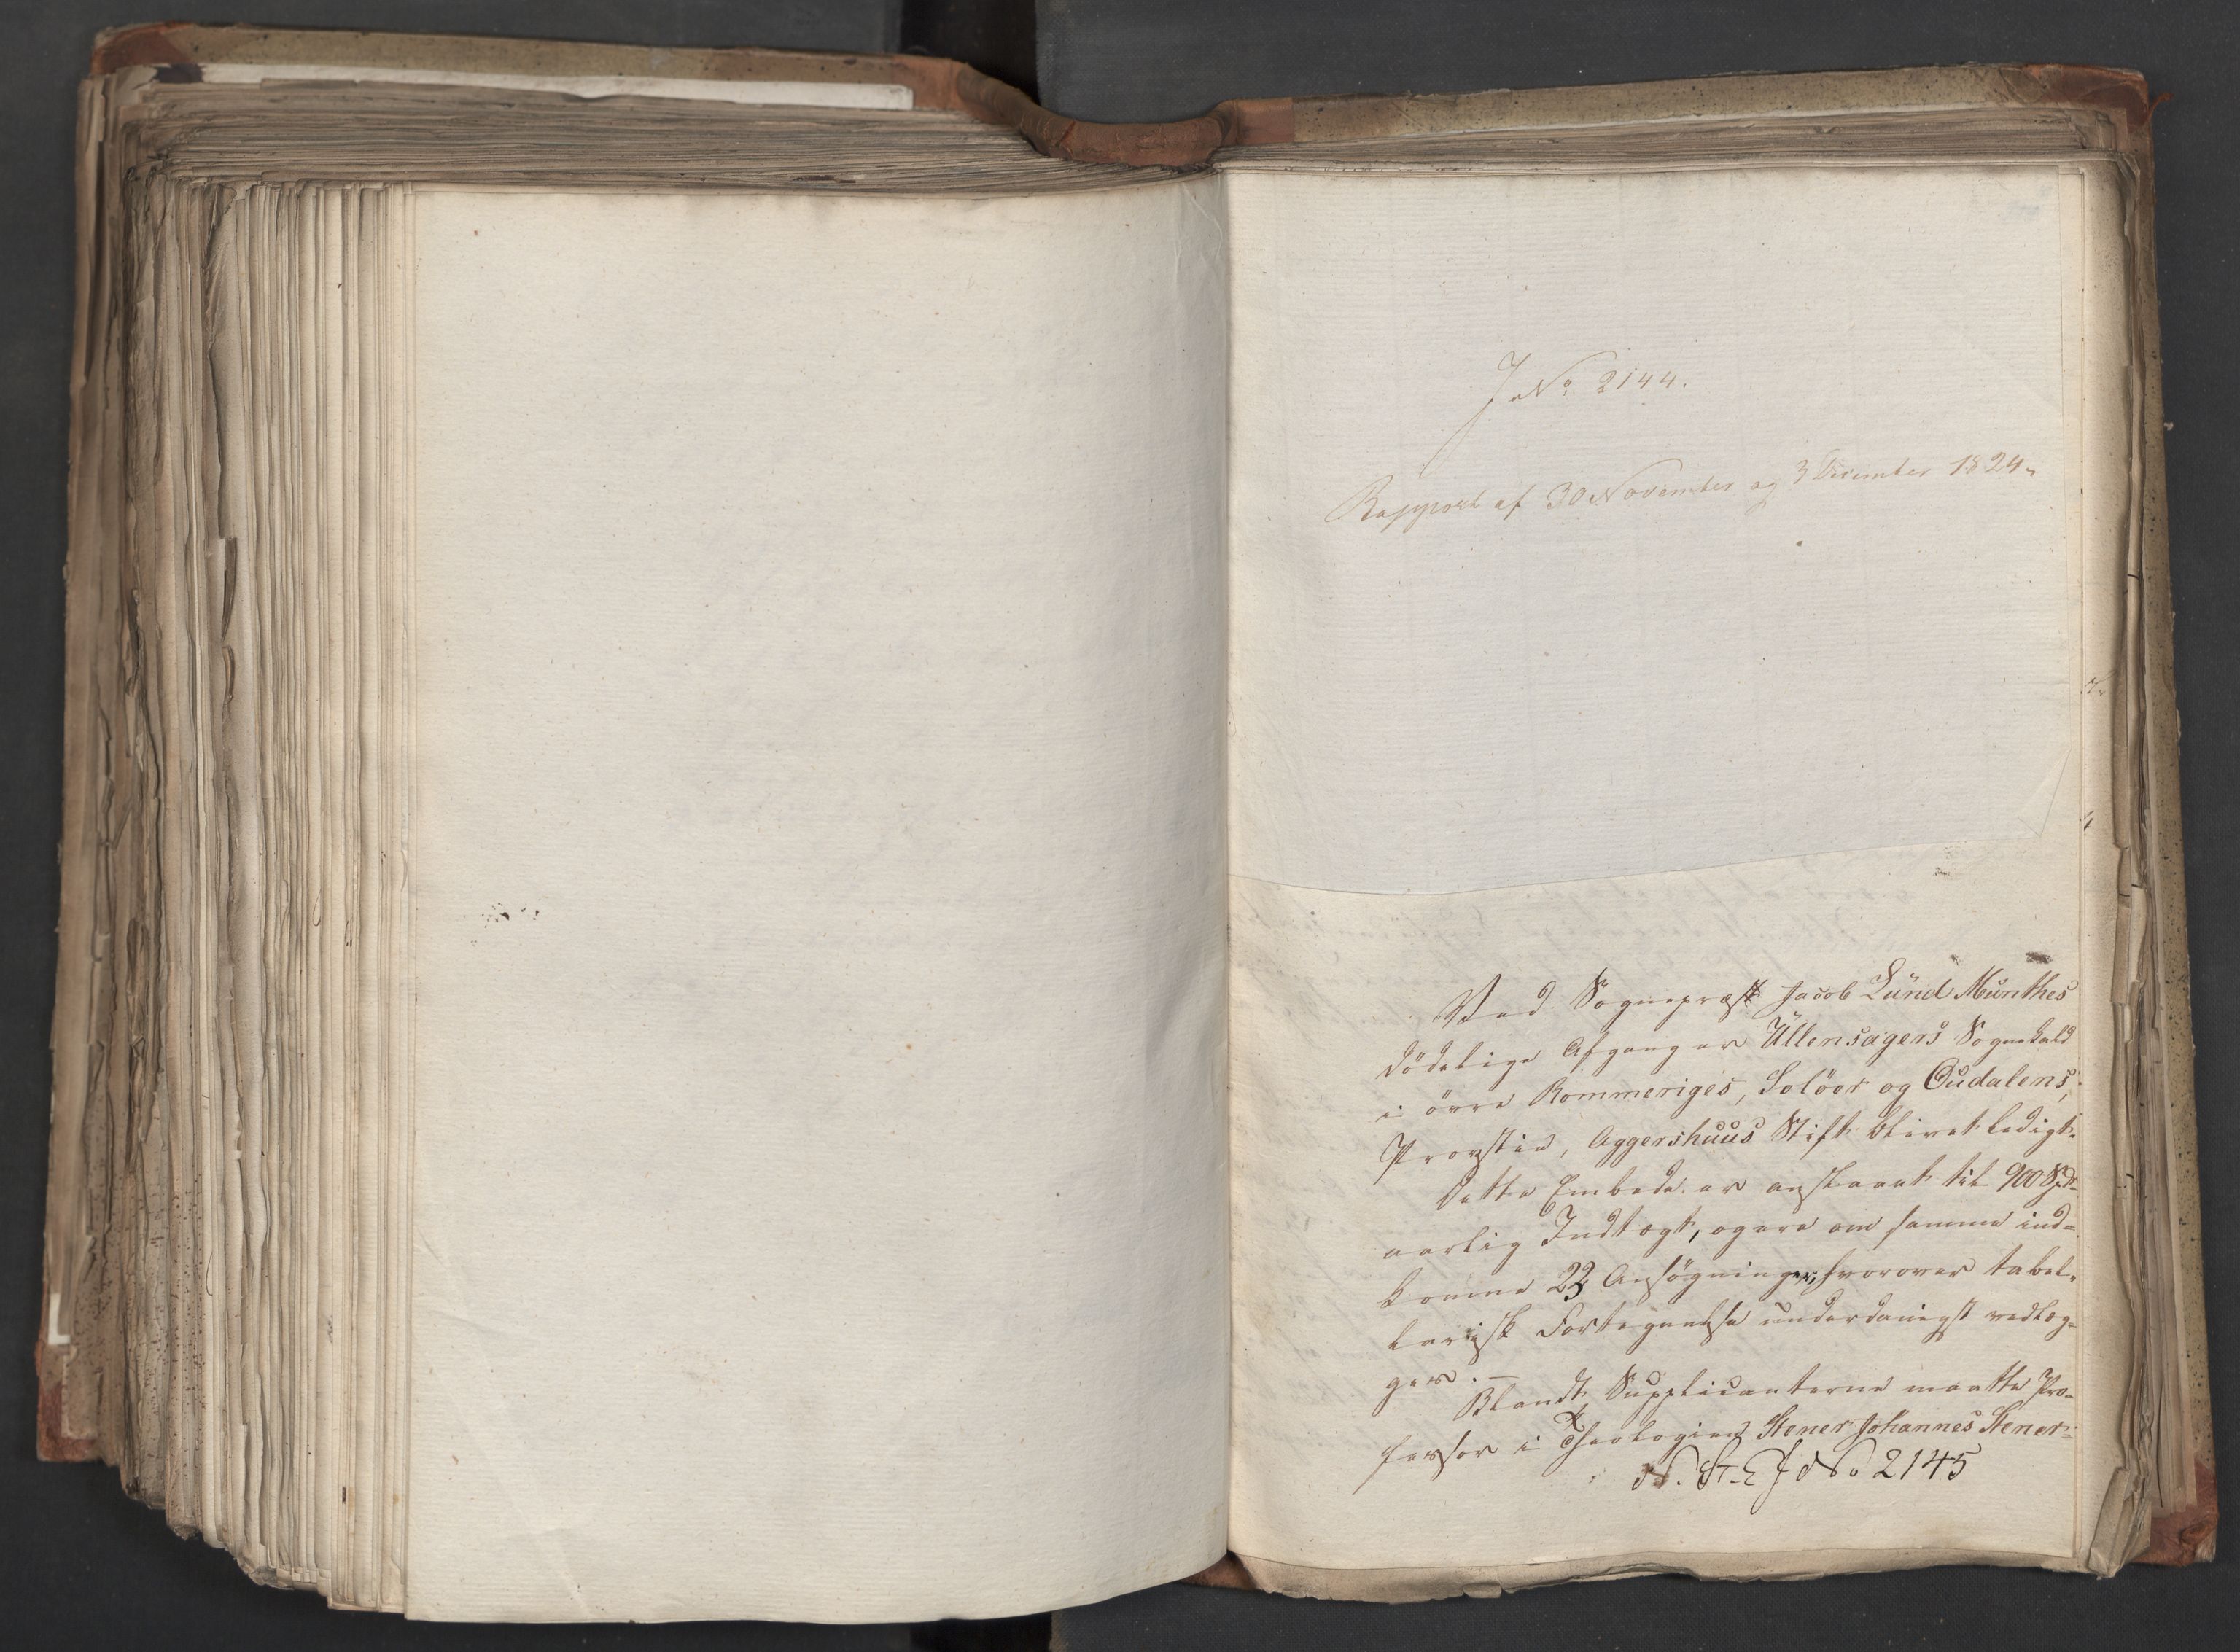 J No. 2144.
Rapport af 30 November og 3 December 1824.
Ved Sognepræst Jacob Lund Munthes
dödelige Afgang er Ullensagers Sognekald
i övre Rommeriges, Solöer og Oudalens,
Provstie, Aggershuus Stift blevet ledigt.
Dette Embede er anslaaet til 900 Spd.
aarlig Indtægt, og ere om samme ind-
komne 23 Ansögninger, hvorover tabel-
larisk Fortegnelse underdanigst vedlæg-
ges. —
Blandt Supplicanterne maatte Pro-
fessor i Theologien Stener Johannes Stener-
N. St. E J No 2145